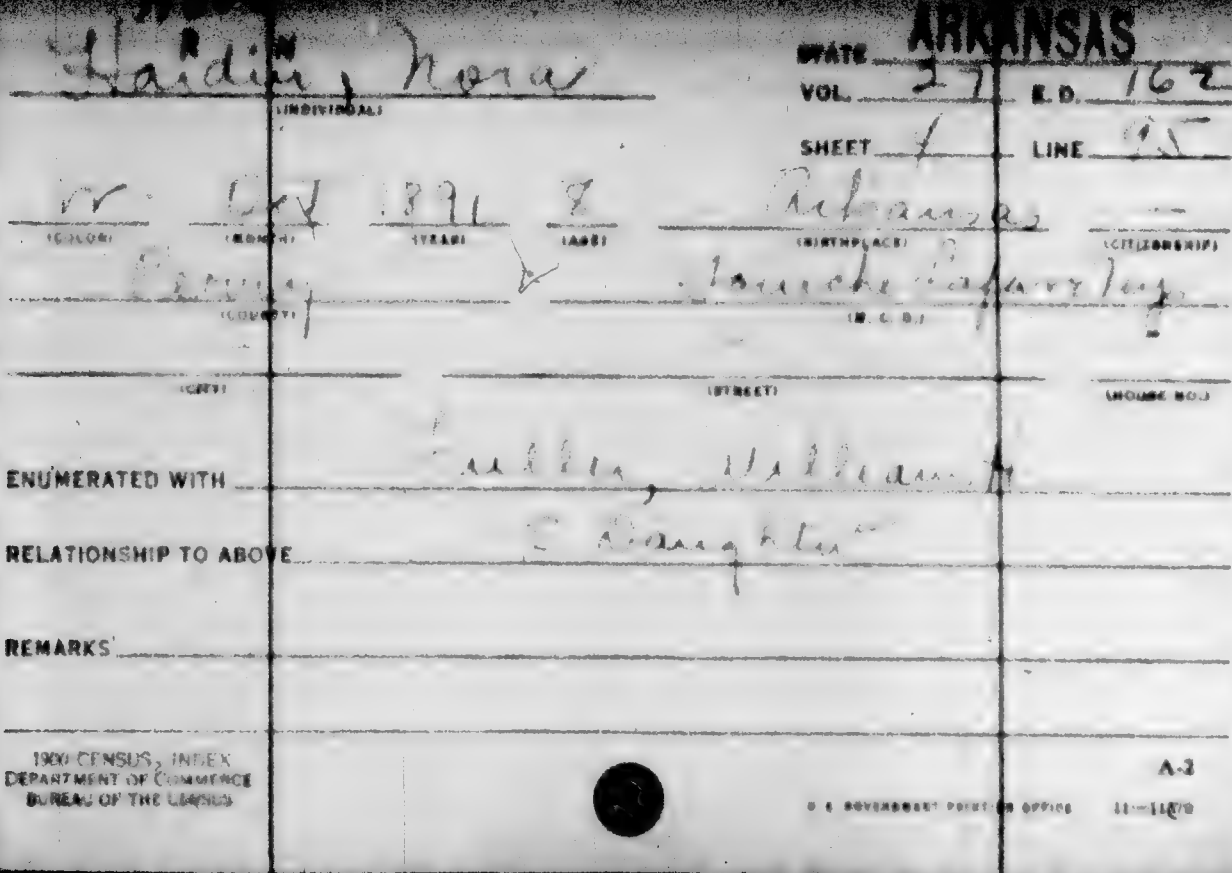 ARKANSAS
Hardin, Nora
STATE
(INDIVIDUAL)
VOL. 27 E.D. 162
SHEET LINE 95
W Oct 1891 8 Arkansas —
(COLOR) (MONTH) (YEAR) (AGE) (BIRTHPLACE) (CITIZENSHIP)
Perry Fourche Lafavr Twp.
(COUNTY) (M. C. D.)
(CITY) (STREET) (HOUSE NO.)
ENUMERATED WITH William H
RELATIONSHIP TO ABOVE S Daughter
REMARKS
1900 CENSUS, INDEX
DEPARTMENT OF COMMERCE
BUREAU OF THE CENSUS
A-2
U. S. GOVERNMENT PRINTING OFFICE